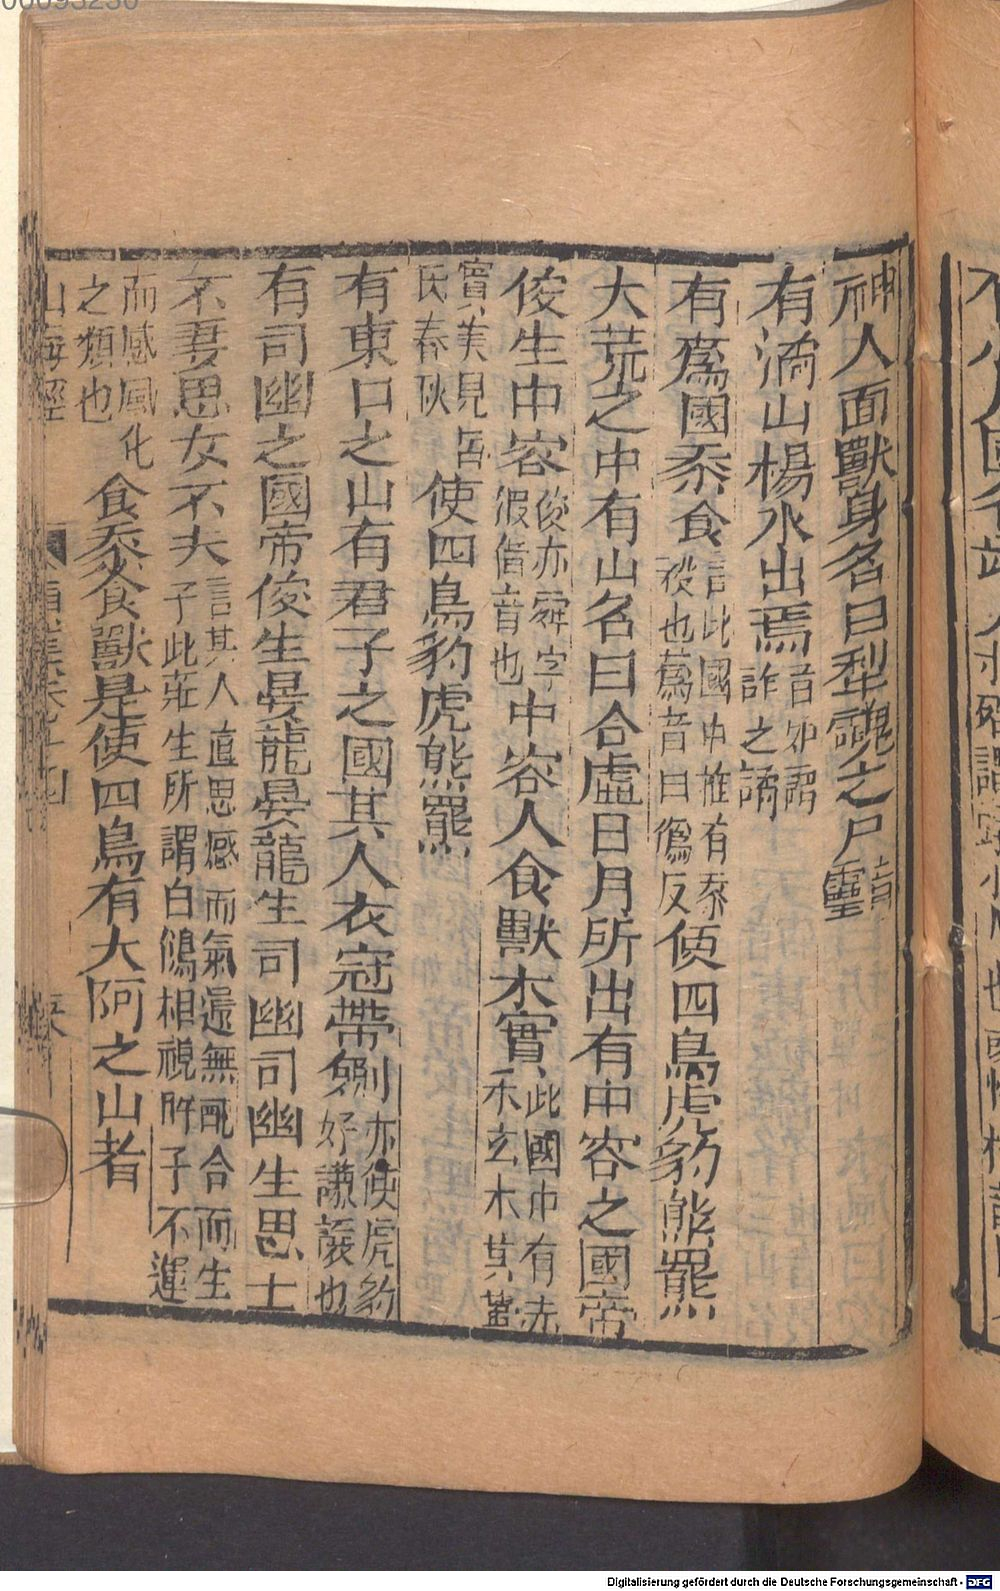 神人面獸身名曰犁䰠之尸音靈
有潏山楊水出焉音如譎詐之譎
有蔿國黍食言此國中惟有黍穀也蔿音口偽反使四鳥虎豹熊羆
大荒之中有山名曰合虛日月所出有中容之國帝
俊生中容俊亦舜字假借音也中容人食獸木實此國中有赤木玄木其華
實美見呂氏春秋使四鳥豹虎熊羆
有東口之山有君子之國其人衣冠帶劍亦使虎豹好謙讓也
有司幽之國帝俊生晏龍晏龍生司幽司幽生思士
不妻思女不夫言其人直思感而氣通無配合而生子此莊生所謂白鵠相視眸子不運
而感風化之類也食黍食獸是使四鳥有大阿之山者
山海經
Digitalisierung gefördert durch die Deutsche Forschungsgemeinschaft - DFG